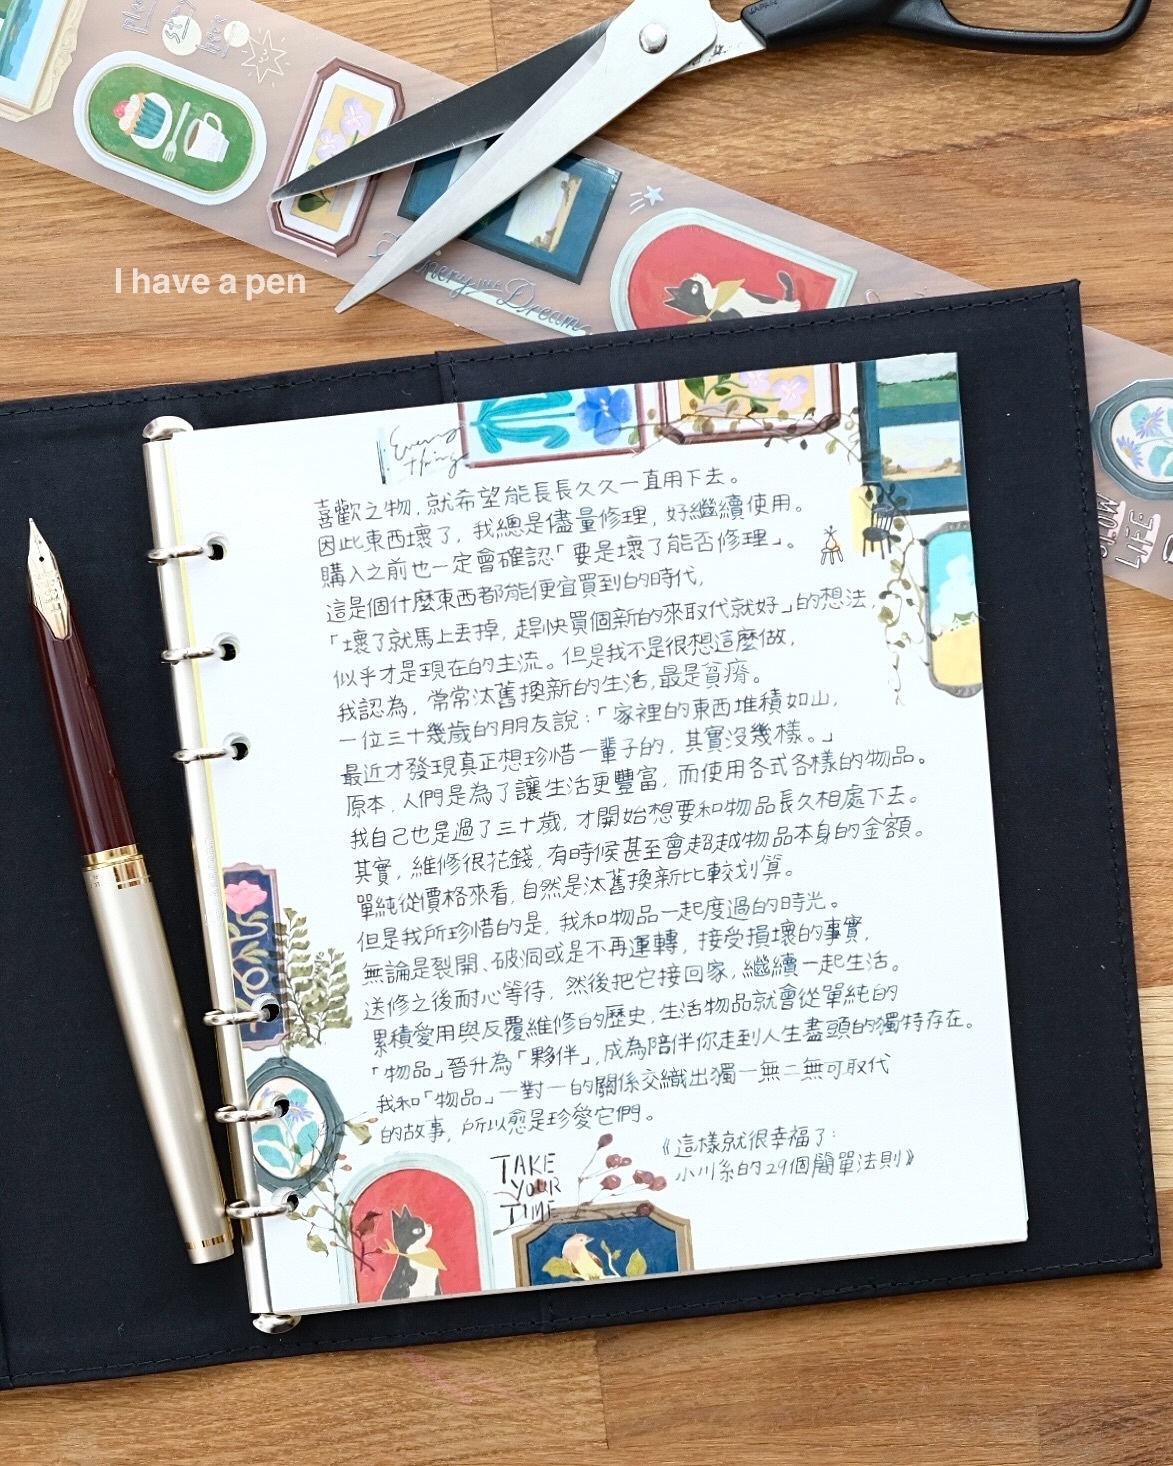 I have a pen
Dream
SLOW
LIFE
Every
thing
喜歡之物，就希望能長長久久一直用下去。
因此東西壞了，我總是儘量修理，好繼續使用。
購入之前也一定會確認「要是壞了能否修理」。
這是個什麼東西都能便宜買到的時代，
「壞了就馬上丟掉，趕快買個新的來取代就好」的想法，
似乎才是現在的主流。但是我不是很想這麼做，
我認為，常常汰舊換新的生活，最是貧瘠。
一位三十幾歲的朋友說：「家裡的東西堆積如山，
最近才發現真正想珍惜一輩子的，其實沒幾樣。」
原本，人們是為了讓生活更豐富，而使用各式各樣的物品。
我自己也是過了三十歲，才開始想要和物品長久相處下去。
其實，維修很花錢，有時候甚至會超越物品本身的金額。
單純從價格來看，自然是汰舊換新比較划算。
但是我所珍惜的是，我和物品一起度過的時光。
無論是裂開、破洞或是不再運轉，接受損壞的事實，
送修之後耐心等待，然後把它接回家，繼續一起生活。
累積愛用與反覆維修的歷史，生活物品就會從單純的
「物品」晉升為「夥伴」，成為陪伴你走到人生盡頭的獨特存在。
我和「物品」一對一的關係交織出獨一無二無可取代
的故事，所以愈是珍愛它們。
《這樣就很幸福了：
小川糸的29個簡單法則》
TAKE
YOUR
TIME